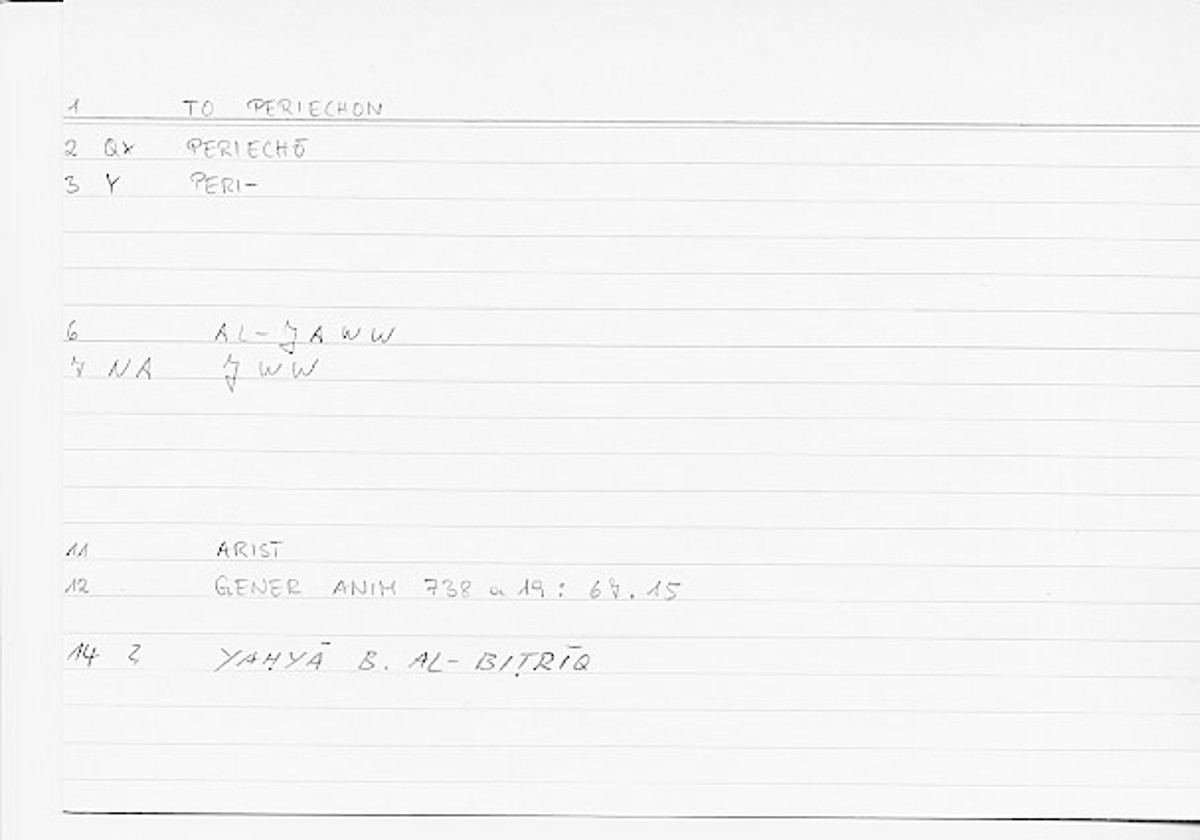 1 TO PERIECHON
2 Qx PERIECHŌ
3 Y PERI-
6 AL-JAWW
7 NA JWW
11 ARIST
12 GENER ANIM 738 a 19: 67.15
14 YAḤYĀ B. AL-BIṬRĪQ